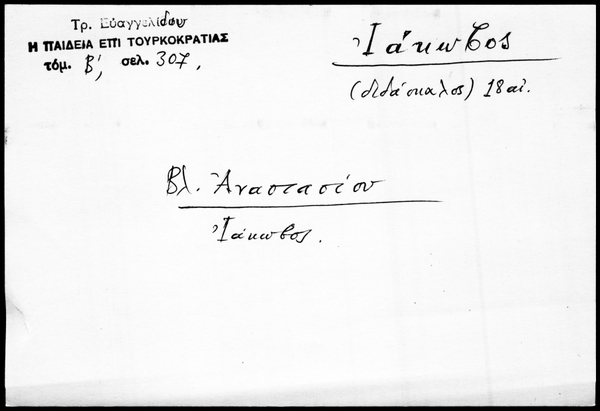 Τρ. Εὐαγγελίδου
Η ΠΑΙΔΕΙΑ ΕΠΙ ΤΟΥΡΚΟΚΡΑΤΙΑΣ
τόμ. Β', σελ. 307,
Ἰάκωβος
(διδάσκαλος) 18 αἰ.
Βλ. Ἀναστασίου
Ἰάκωβος.